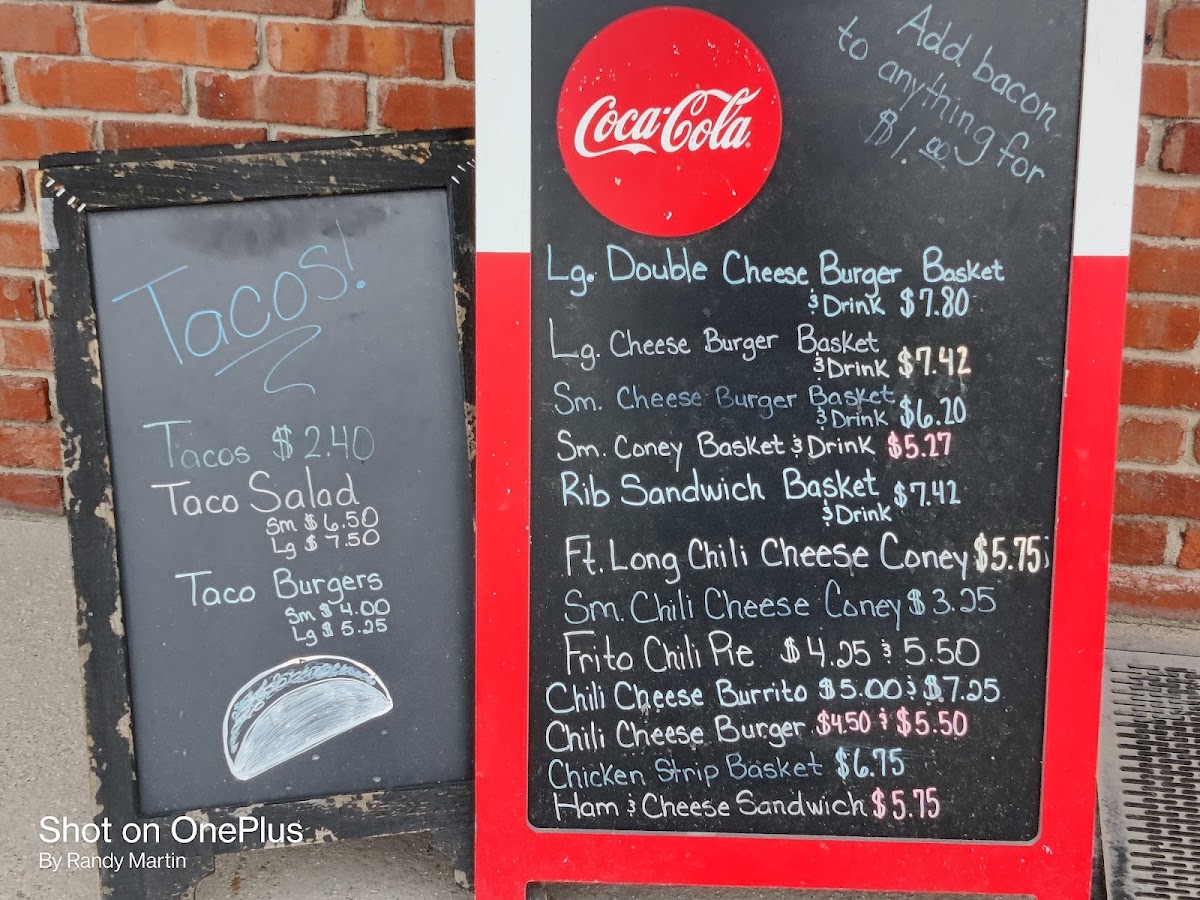 Tacos!
Tacos $2.40
Taco Salad
Sm $6.50
Lg $7.50
Taco Burgers
Sm $4.00
Lg $5.25
Coca-Cola
Add bacon
to anything for
$1.00
Lg. Double Cheese Burger Basket
& Drink $7.80
Lg. Cheese Burger Basket
& Drink $7.42
Sm. Cheese Burger Basket
& Drink $6.20
Sm. Coney Basket & Drink $5.27
Rib Sandwich Basket $7.42
& Drink
Ft. Long Chili Cheese Coney $5.75
Sm. Chili Cheese Coney $3.25
Frito Chili Pie $4.25 & 5.50
Chili Cheese Burrito $5.00 & $7.25
Chili Cheese Burger $4.50 & $5.50
Chicken Strip Basket $6.75
Ham & Cheese Sandwich $5.75
Shot on OnePlus
By Randy Martin